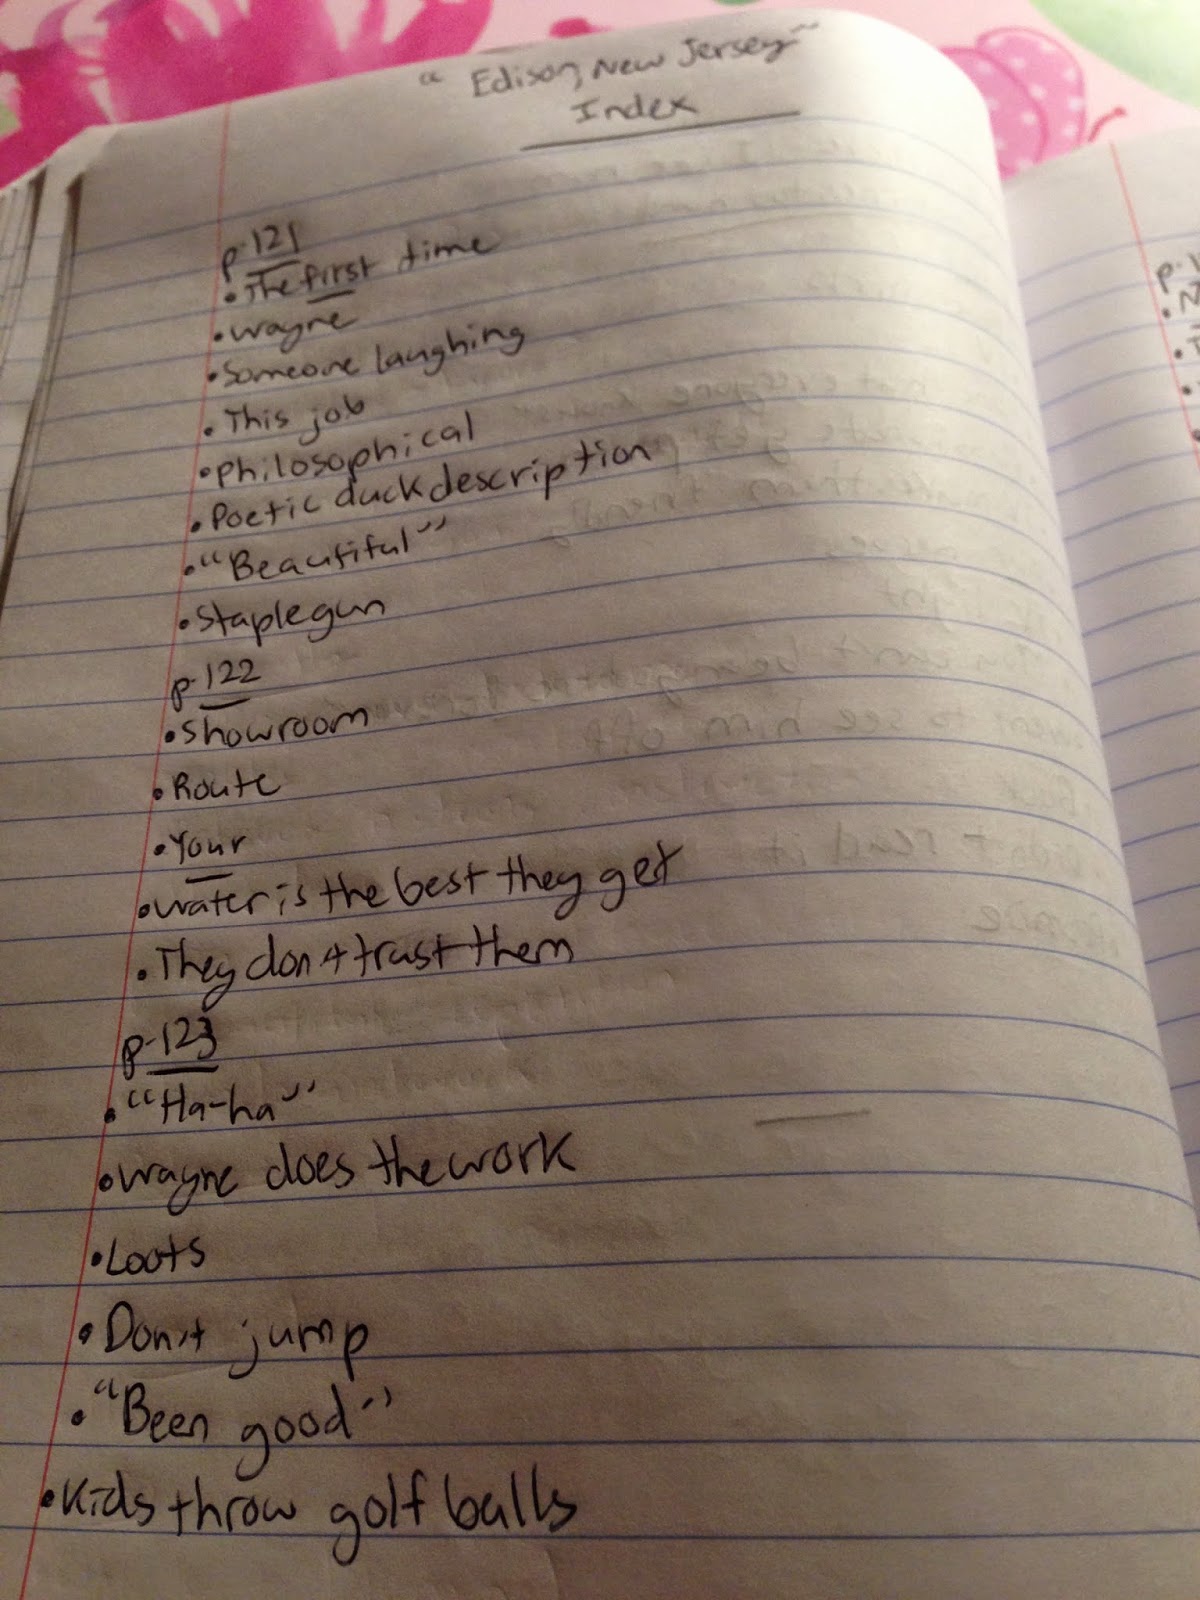 "Edison, New Jersey"
Index
p.121
•The first time
•Wayne
•Someone laughing
•This job
•Philosophical
•Poetic duck description
•"Beautiful"
•Staplegun
p.122
•Showroom
•Route
•Your
•Water is the best they get
•They don't trust them
p.123
•"Ha-ha"
•Wayne does the work
•Loots
•Don't jump
•"Been good"
•Kids throw golf balls